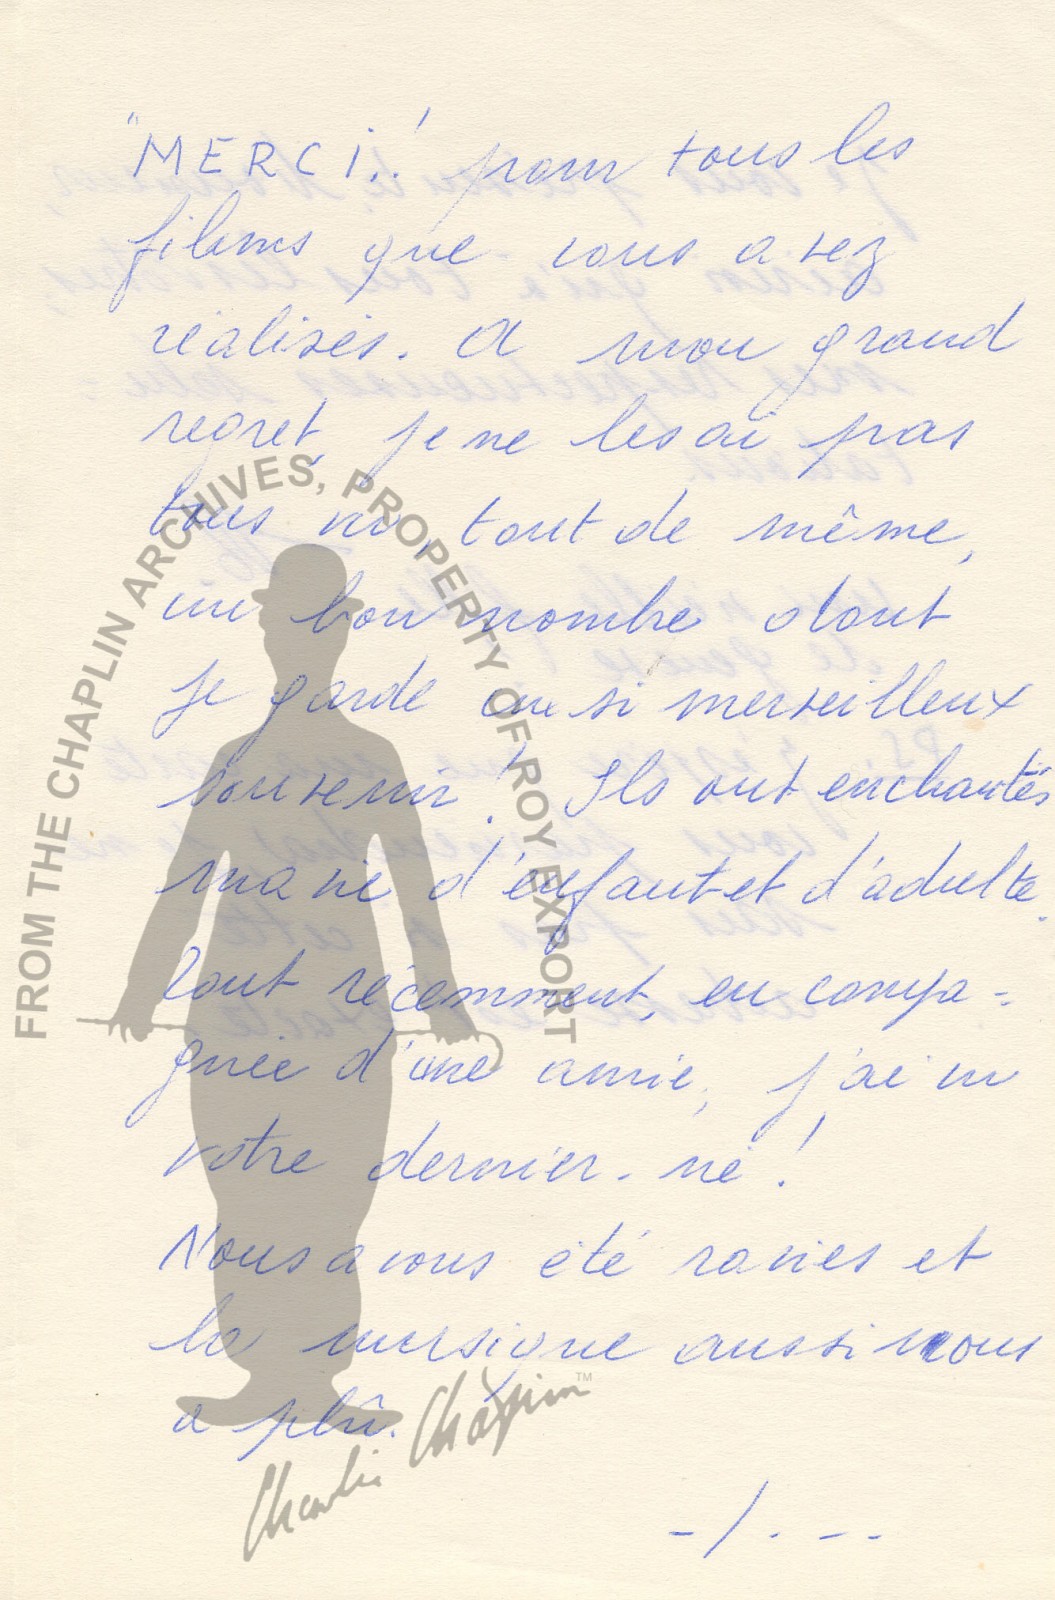 "MERCI.! pour tous les
films que vous avez
réalisés. A mon grand
regret, je ne les ai pas
tous vu, tout de même,
un bon nombre dont
je garde un si merveilleux
souvenir! Ils ont enchantés
ma vie d'enfant et d'adulte.
Tout récemment, en compa-
gnie d'une amie, j'ai vu
votre dernier-né!
Nous avons été ravies et
la musique aussi nous
a plû.
-/.--
FROM THE CHAPLIN ARCHIVES, PROPERTY OF ROY EXPORT
Charlie Chaplin™